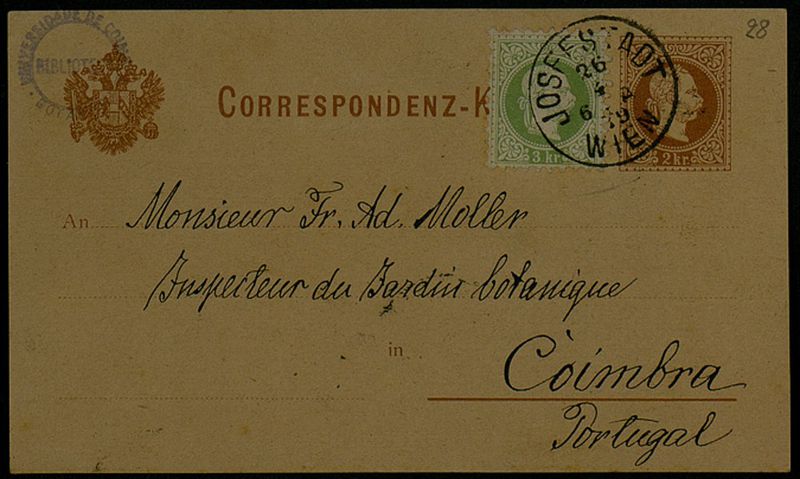 28
UNIVERSIDADE DE COIMBRA
BIBLIOTECA
CORRESPONDENZ-K
3 kr.
JOSEFSTADT
26
4
6
79
WIEN
2 kr.
An Monsieur Fr. Ad. Moller
Inspecteur du Jardin botanique
in Coimbra
Portugal